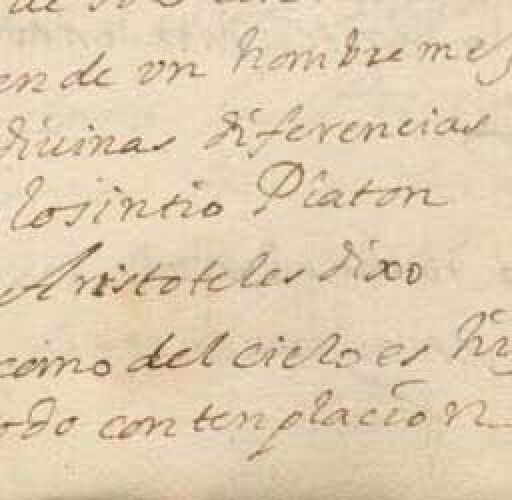 ende vn hombre mes
diuinas diferencias
losintio Platon
Aristoteles dixo
como del cielo es
odo contenplacion